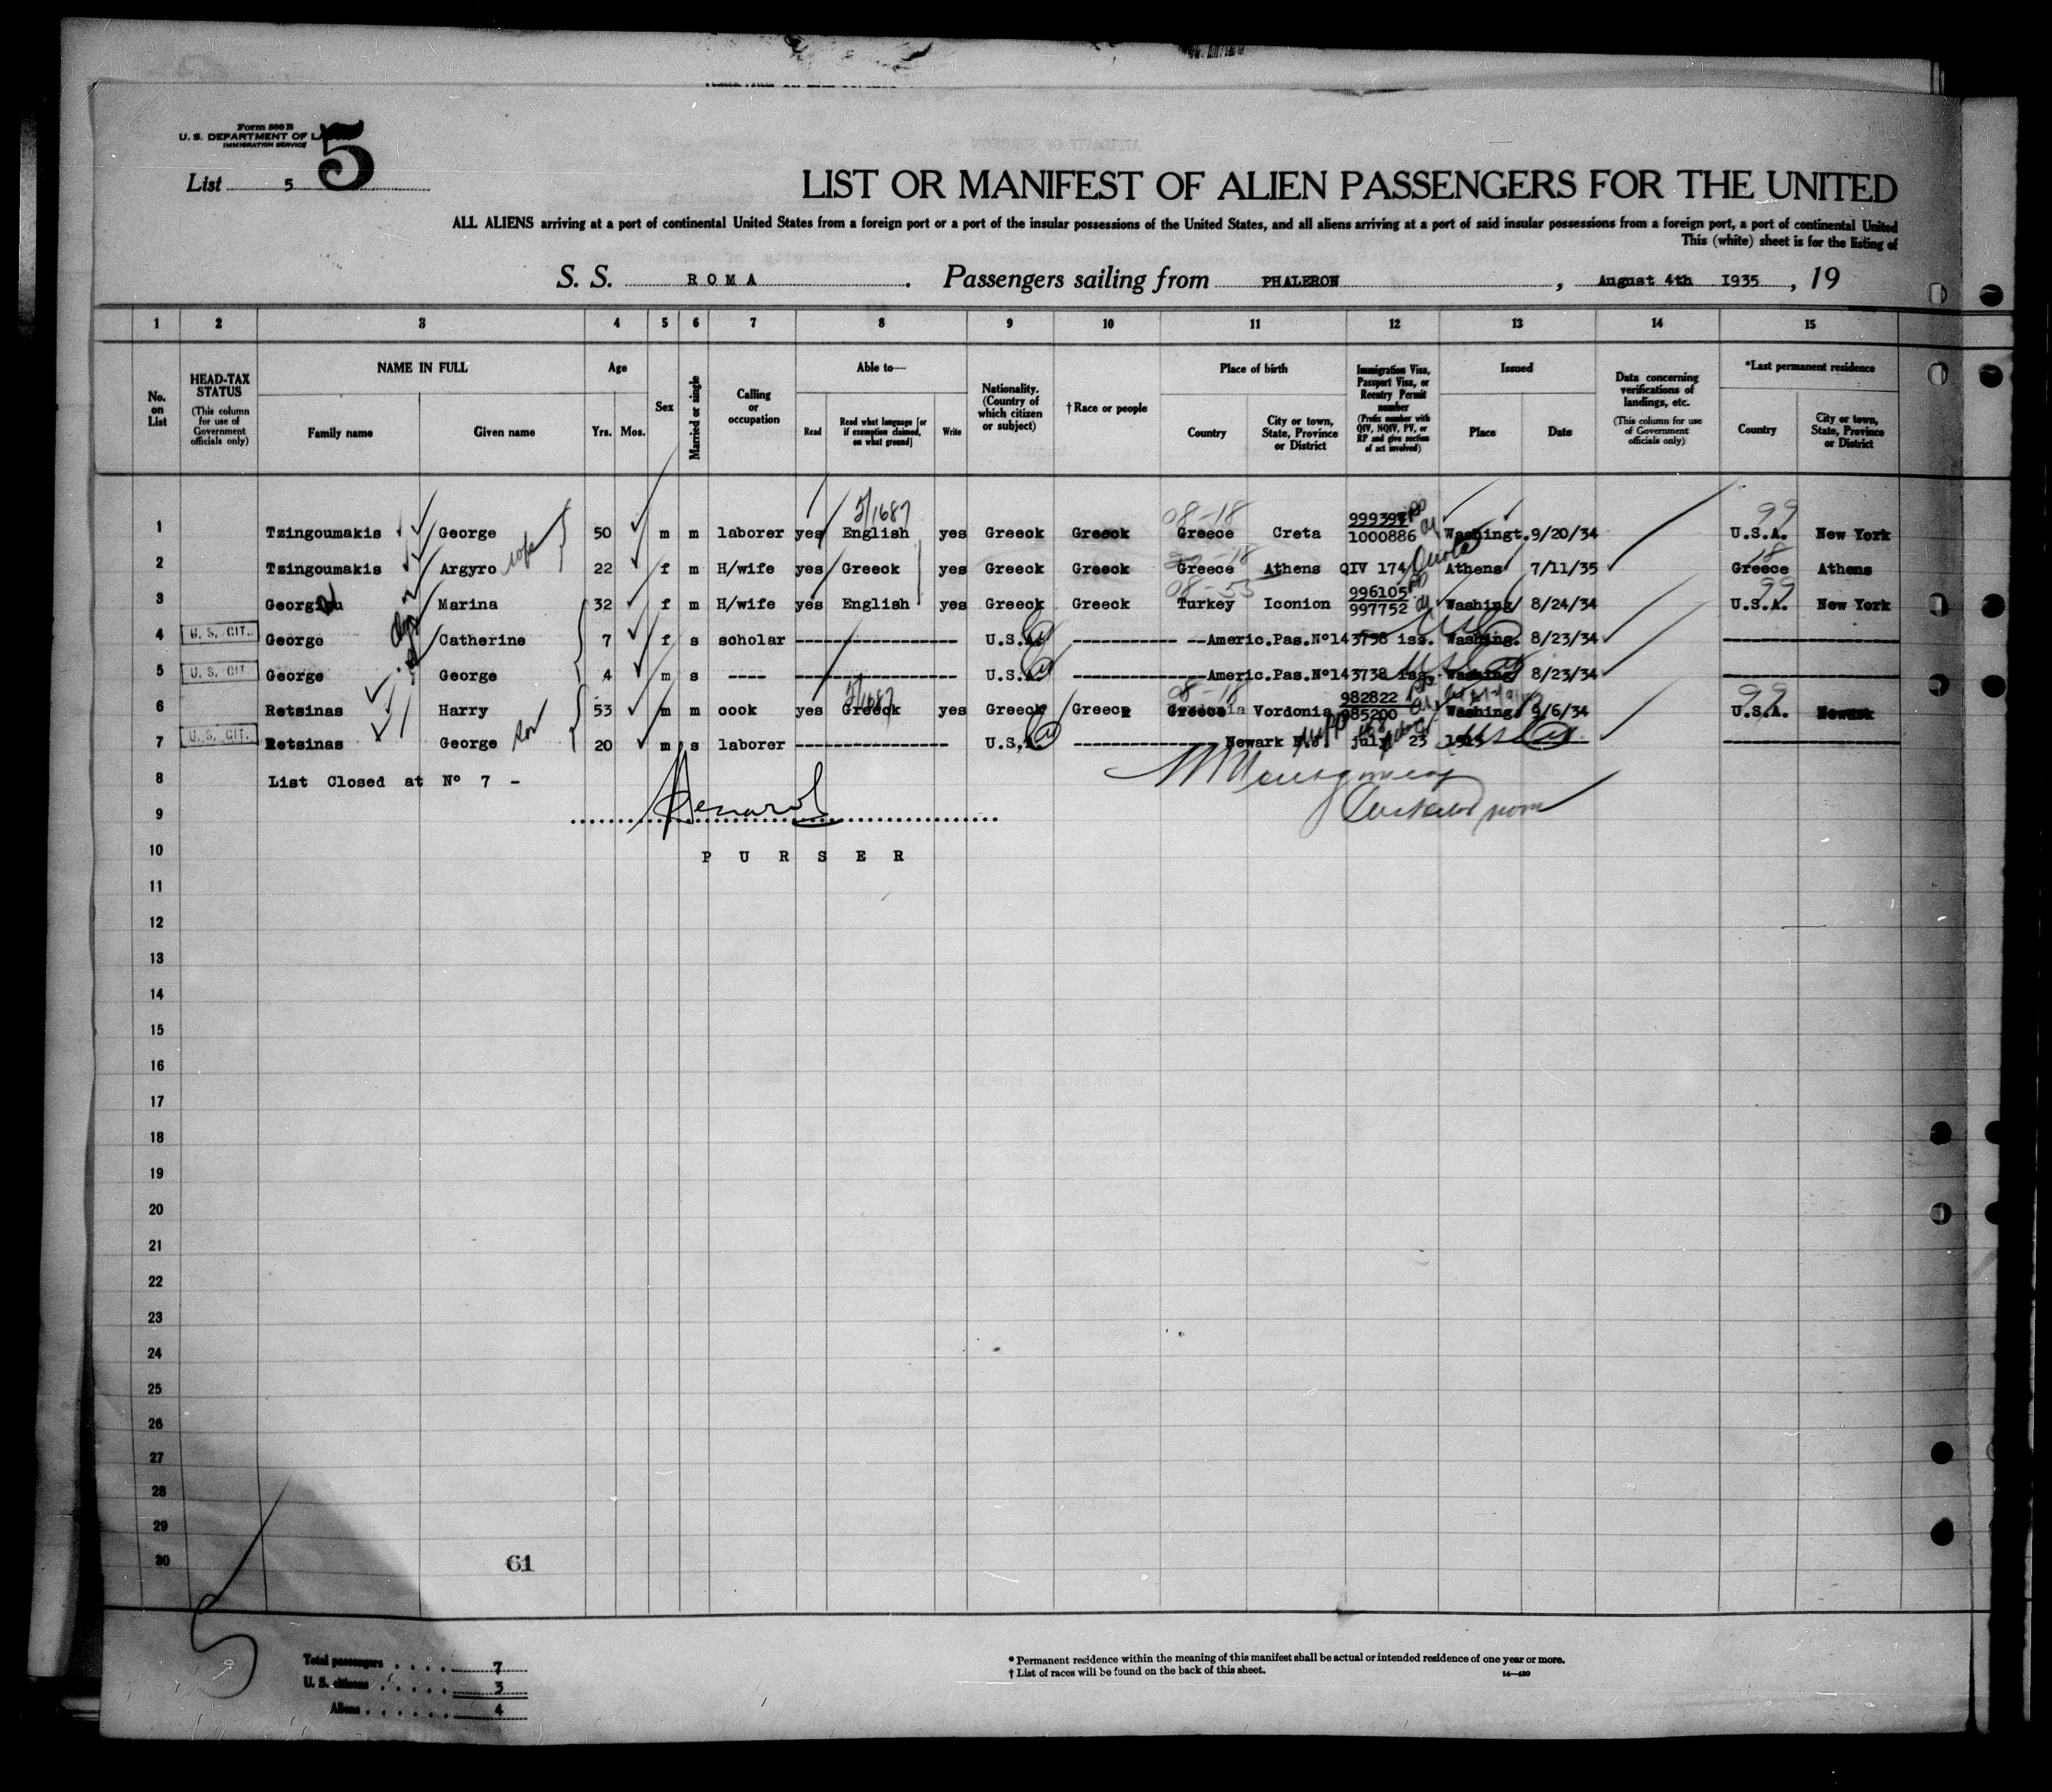 Form 500 B
U. S. DEPARTMENT OF
IMMIGRATION SERVICE
5
List 5
LIST OR MANIFEST OF ALIEN PASSENGERS FOR THE UNITED
ALL ALIENS arriving at a port of continental United States from a foreign port or a port of the insular possessions of the United States, and all aliens arriving at a port of said insular possessions from a foreign port, a port of continental United
This (white) sheet is for the listing of
S. S. ROMA. Passengers sailing from PHALERON, August 4th I935, 19
1 2 3 4 5 6 7 8 9 10 11 12 13 14 15
No. on List
HEAD-TAX STATUS (This column for use of Government officials only)
NAME IN FULL
Family name Given name
Age
Yrs. Mos.
Sex
Married or single
Calling or occupation
Able to—
Read Read what language [or if exemption claimed, on what ground] Write
Nationality. (Country of which citizen or subject)
† Race or people
Place of birth
Country City or town, State, Province or District
Immigration Visa, Passport Visa, or Reentry Permit number (Prefix number with QIV, NQIV, PV, or RP and give section of act involved)
Issued
Place Date
Data concerning verifications of landings, etc. (This column for use of Government officials only)
*Last permanent residence
Country City or town, State, Province or District
5/1687 08-18 99
1 Tzingoumakis George 50 m m laborer yes English yes Greeck Greeck Greece Creta 1000886 Washingt. 9/20/34 U.S.A. New York
2 Tzingoumakis Argyro wife 22 f m H/wife yes Greeck yes Greeck Greeck Greece Athens QIV 174 Quota Athens 7/11/35 Greece Athens
08-55 99
3 Marina 32 f m H/wife yes English yes Greeck Greeck Turkey Iconion 996105 997752 Washing 8/24/34 U.S.A. New York
4 U. S. CIT. George Catherine 7 f s scholar ---------------- U.S.A. ---------- --Americ.Pas.Nº143738 iss. Washing. 8/23/34 ----------------
5 U. S. CIT. George George 4 m s ---- U.S.A. ------------Americ.Pas.Nº143738 iss. Washing 8/23/34 ----------------
5/1687 08-18 99
6 Retsinas Harry 53 m m cook yes Greeck yes Greeck Greece Vordonia 982822 985200 Washing. 9/6/34 U.S.A. Newark
7 U. S. CIT. Retsinas George son 20 m s laborer ---------------- U.S.A. -------------- Newark N.J. july 23 1915 ----------------
8 List Closed at Nº 7 -
9
10 PURSER
11
12
13
14
15
16
17
18
19
20
21
22
23
24
25
26
27
28
29
30
61
5
Total passengers . . . . 7
U. S. citizens . . . . . 3
Aliens . . . . . . 4
* Permanent residence within the meaning of this manifest shall be actual or intended residence of one year or more.
† List of races will be found on the back of this sheet. 14—430